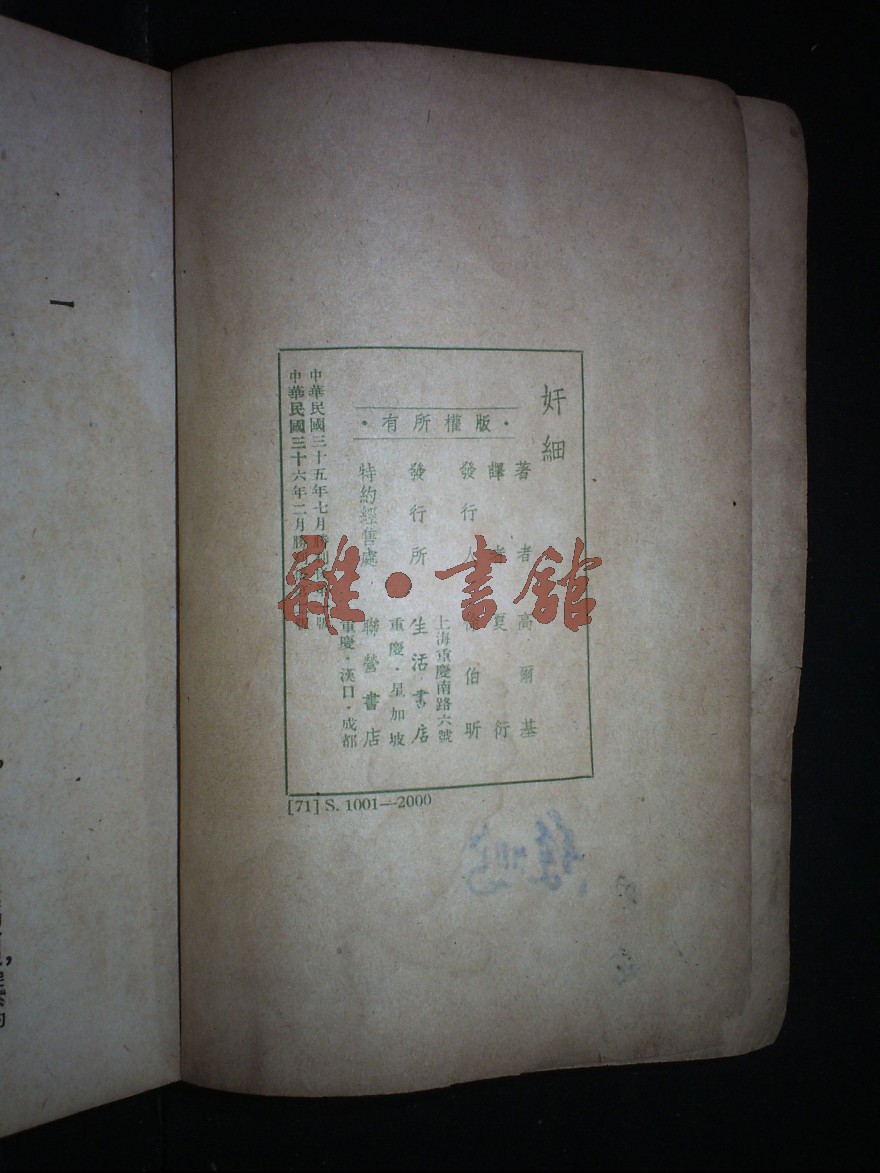 奸細
著者 高爾基
譯者 夏衍
發行人 伯昕
上海重慶南路六號
發行所 生活書店
重慶·星加坡
特約經售處 聯營書店
重慶·漢口·成都
·版權所有·
中華民國三十五年七月勝利
中華民國三十六年二月勝
[71] S. 1001—2000
雜·書館
一